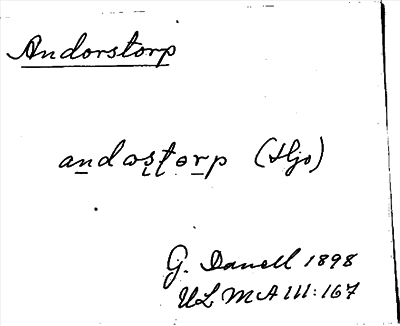 Andorstorp
andas̨t̨ɵrp (Hjo)
G. Danell 1898
ULMA 111:167